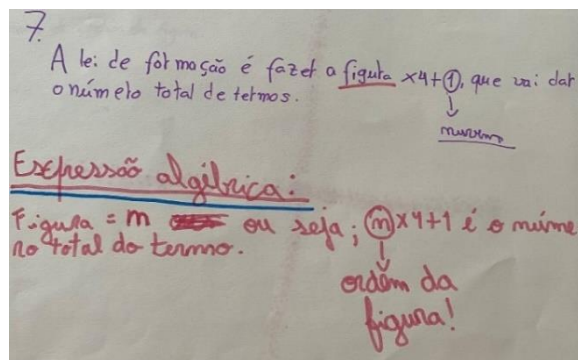 7.
A lei de formação é fazer a figura x4+1, que vai dar
o número total de termos.
Expressão algébrica:
Figura = m ou seja; m x4+1 é o núme
ro total do termo.
ordêm da
figura!